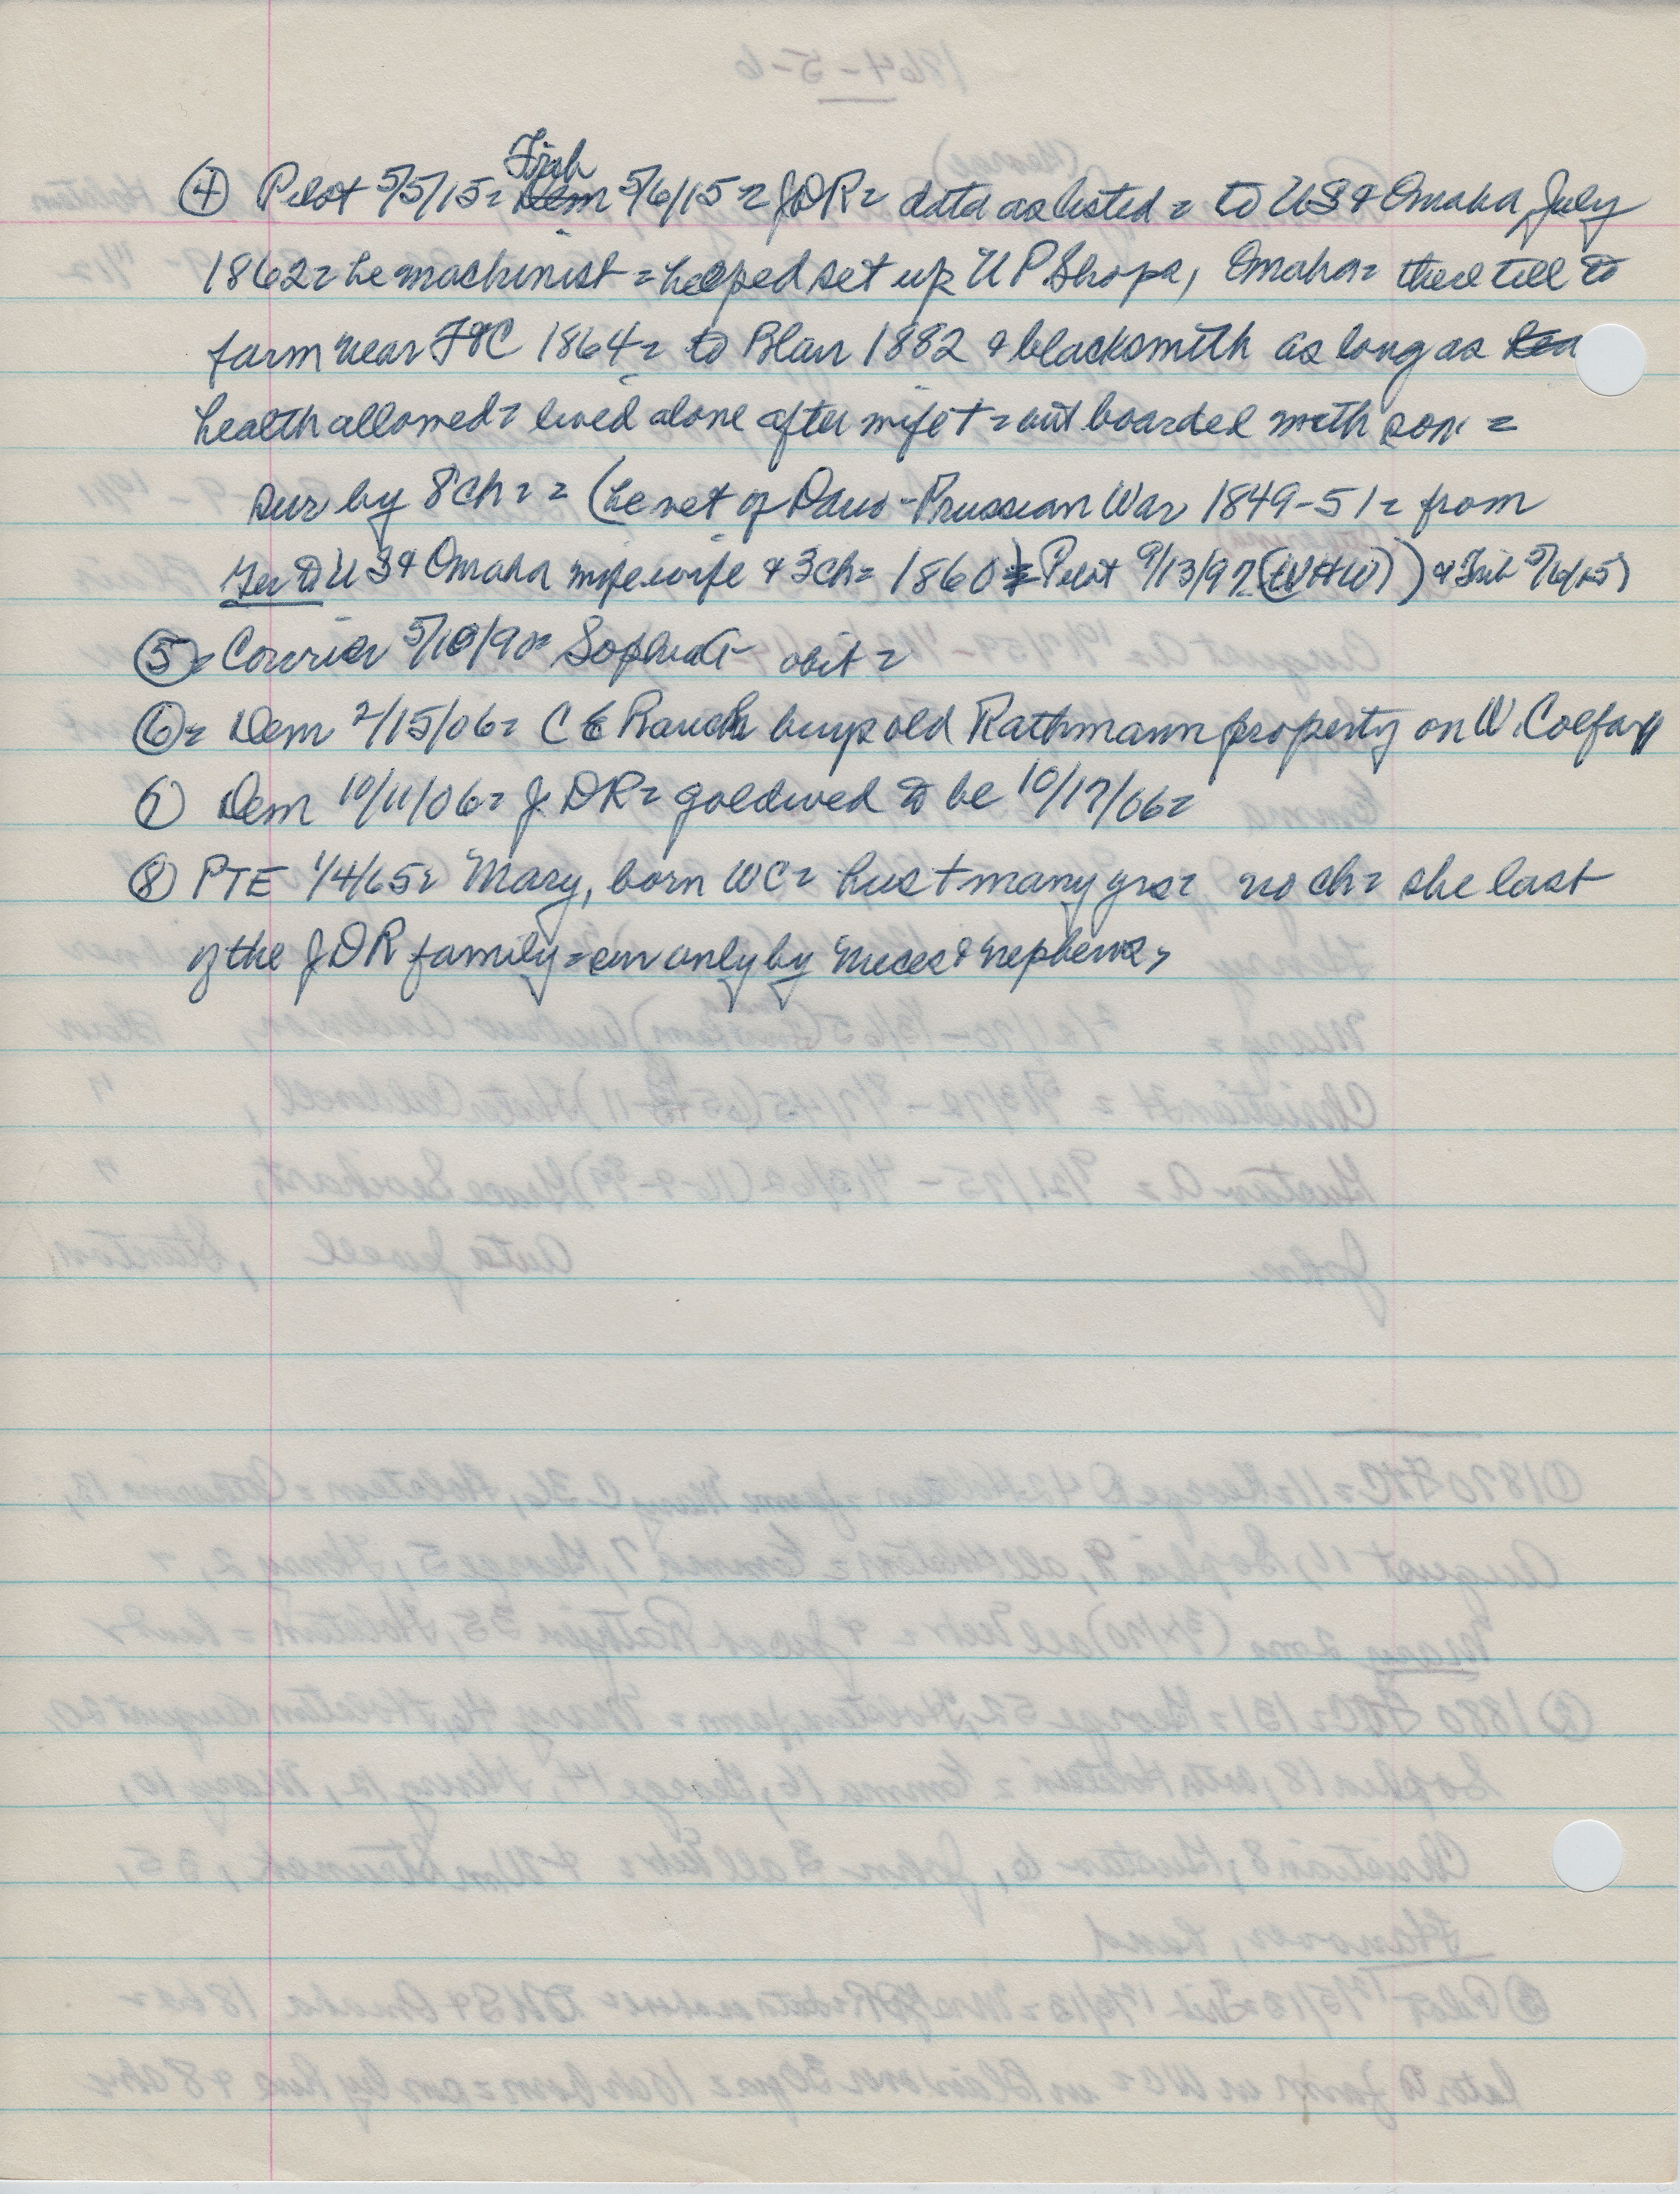 ④ Pilot 5/5/15= Trib 5/6/15 = JDR= data as listed = to US & Omaha July
1862= he machinist = helped set up UP Shops, Omaha= there till to
farm near 1864= to Blair 1882 & blacksmith as long as
health allowed= lived alone after wife † = but boarded with son =
sur by 8 ch = = (he vet of Dano-Prussian War 1849-51= from
Ger to US & Omaha wife & 3 ch= 1860 = Pilot 9/13/97 (WHW)) & Trib 5/6/15)
⑤= Courier 5/10/90= Sophia † obit =
⑥= Dem 2/15/06= C E Rauch buys old Rathmann property on W. Colfax
⑦ Dem 10/11/06= J DR= gold wed to be 10/17/06=
⑧ PTE 1/4/65= Mary, born WC= hus † many yrs= no ch= she last
of the JDR family = sur only by nieces & nephews,